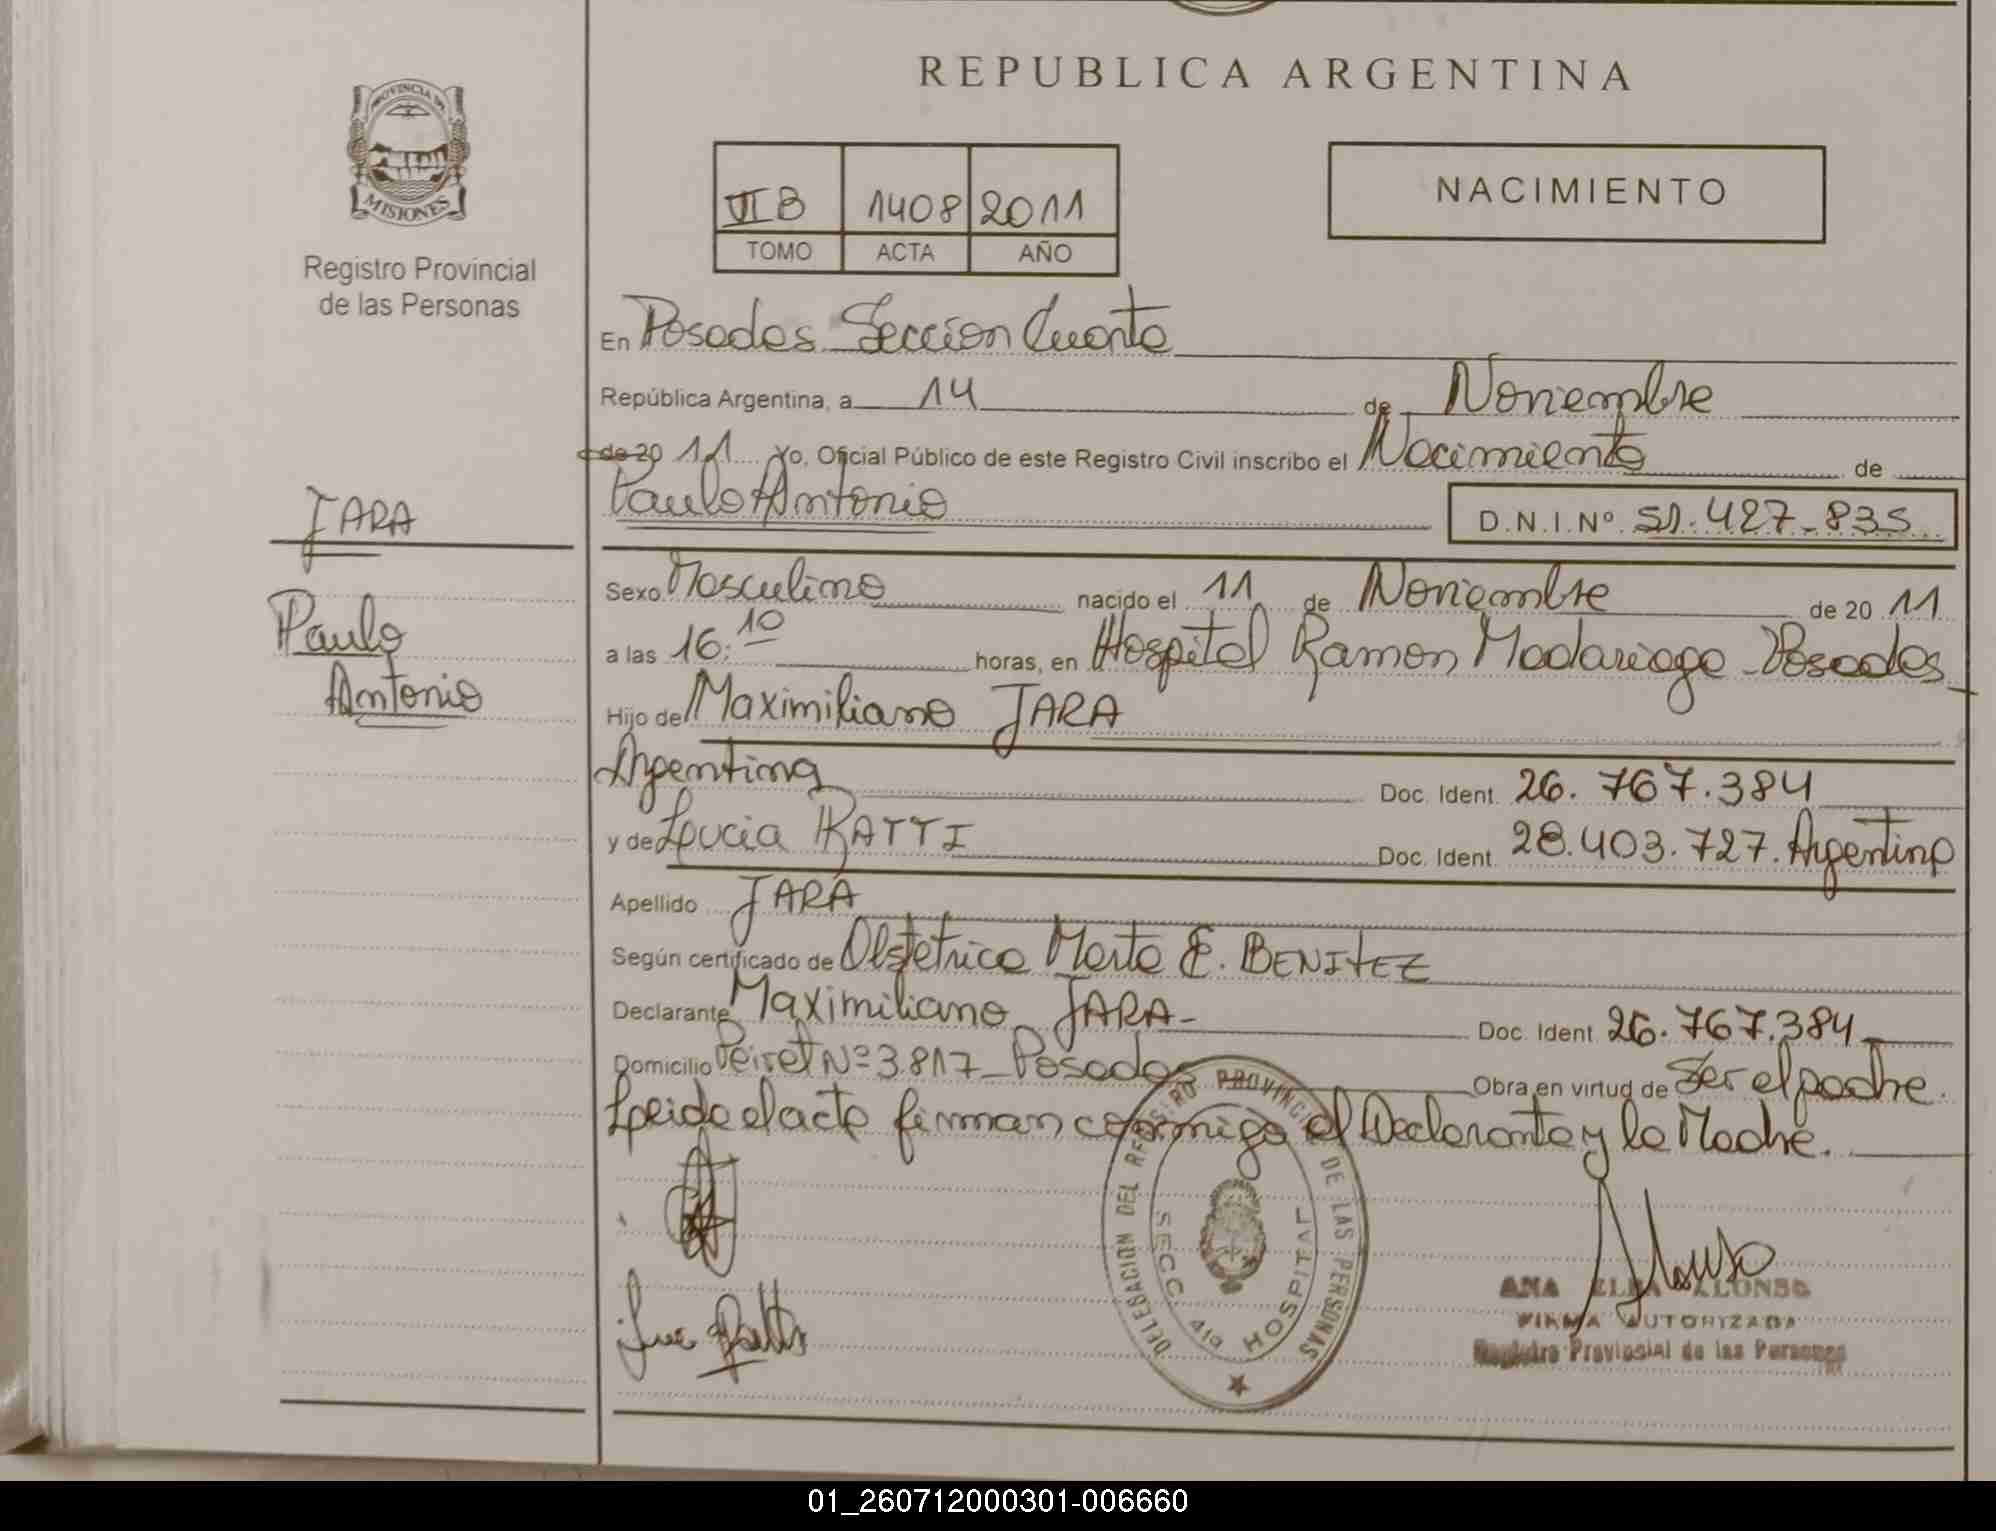 REPUBLICA ARGENTINA
PROVINCIA DE
MISIONES
Registro Provincial
de las Personas
VI B 1408 2011
TOMO ACTA AÑO
NACIMIENTO
En Posadas Sección Cuarta
República Argentina, a 14 de Noviembre
de 20 11 Yo, Oficial Público de este Registro Civil inscribo el Nacimiento de
Paulo Antonio D.N.I. Nº. 51.427-835
JARA
Paulo
Antonio
Sexo Masculino nacido el 11 de Noviembre de 20 11
a las 16:10 horas, en Hospital Ramon Madariaga - Posadas
Hijo de Maximiliano JARA
Argentina Doc. Ident. 26.767.384
y de Lucia RATTI Doc. Ident. 28.403.727. Argentina
Apellido JARA
Según certificado de Obstetrica Marta E. BENITEZ
Declarante Maximiliano JARA - Doc. Ident. 26.767.384
Domicilio Peiret Nº 3.817 - Posadas Obra en virtud de Ser el padre.
Leida el acta firman conmigo el Declarante y la Madre.
DELEGACION DEL REGISTRO PROVINCIAL DE LAS PERSONAS
SECC. 4ta HOSPITAL
ANA ELBA ALONSO
FIRMA AUTORIZADA
Registro Provincial de las Personas
01_260712000301-006660